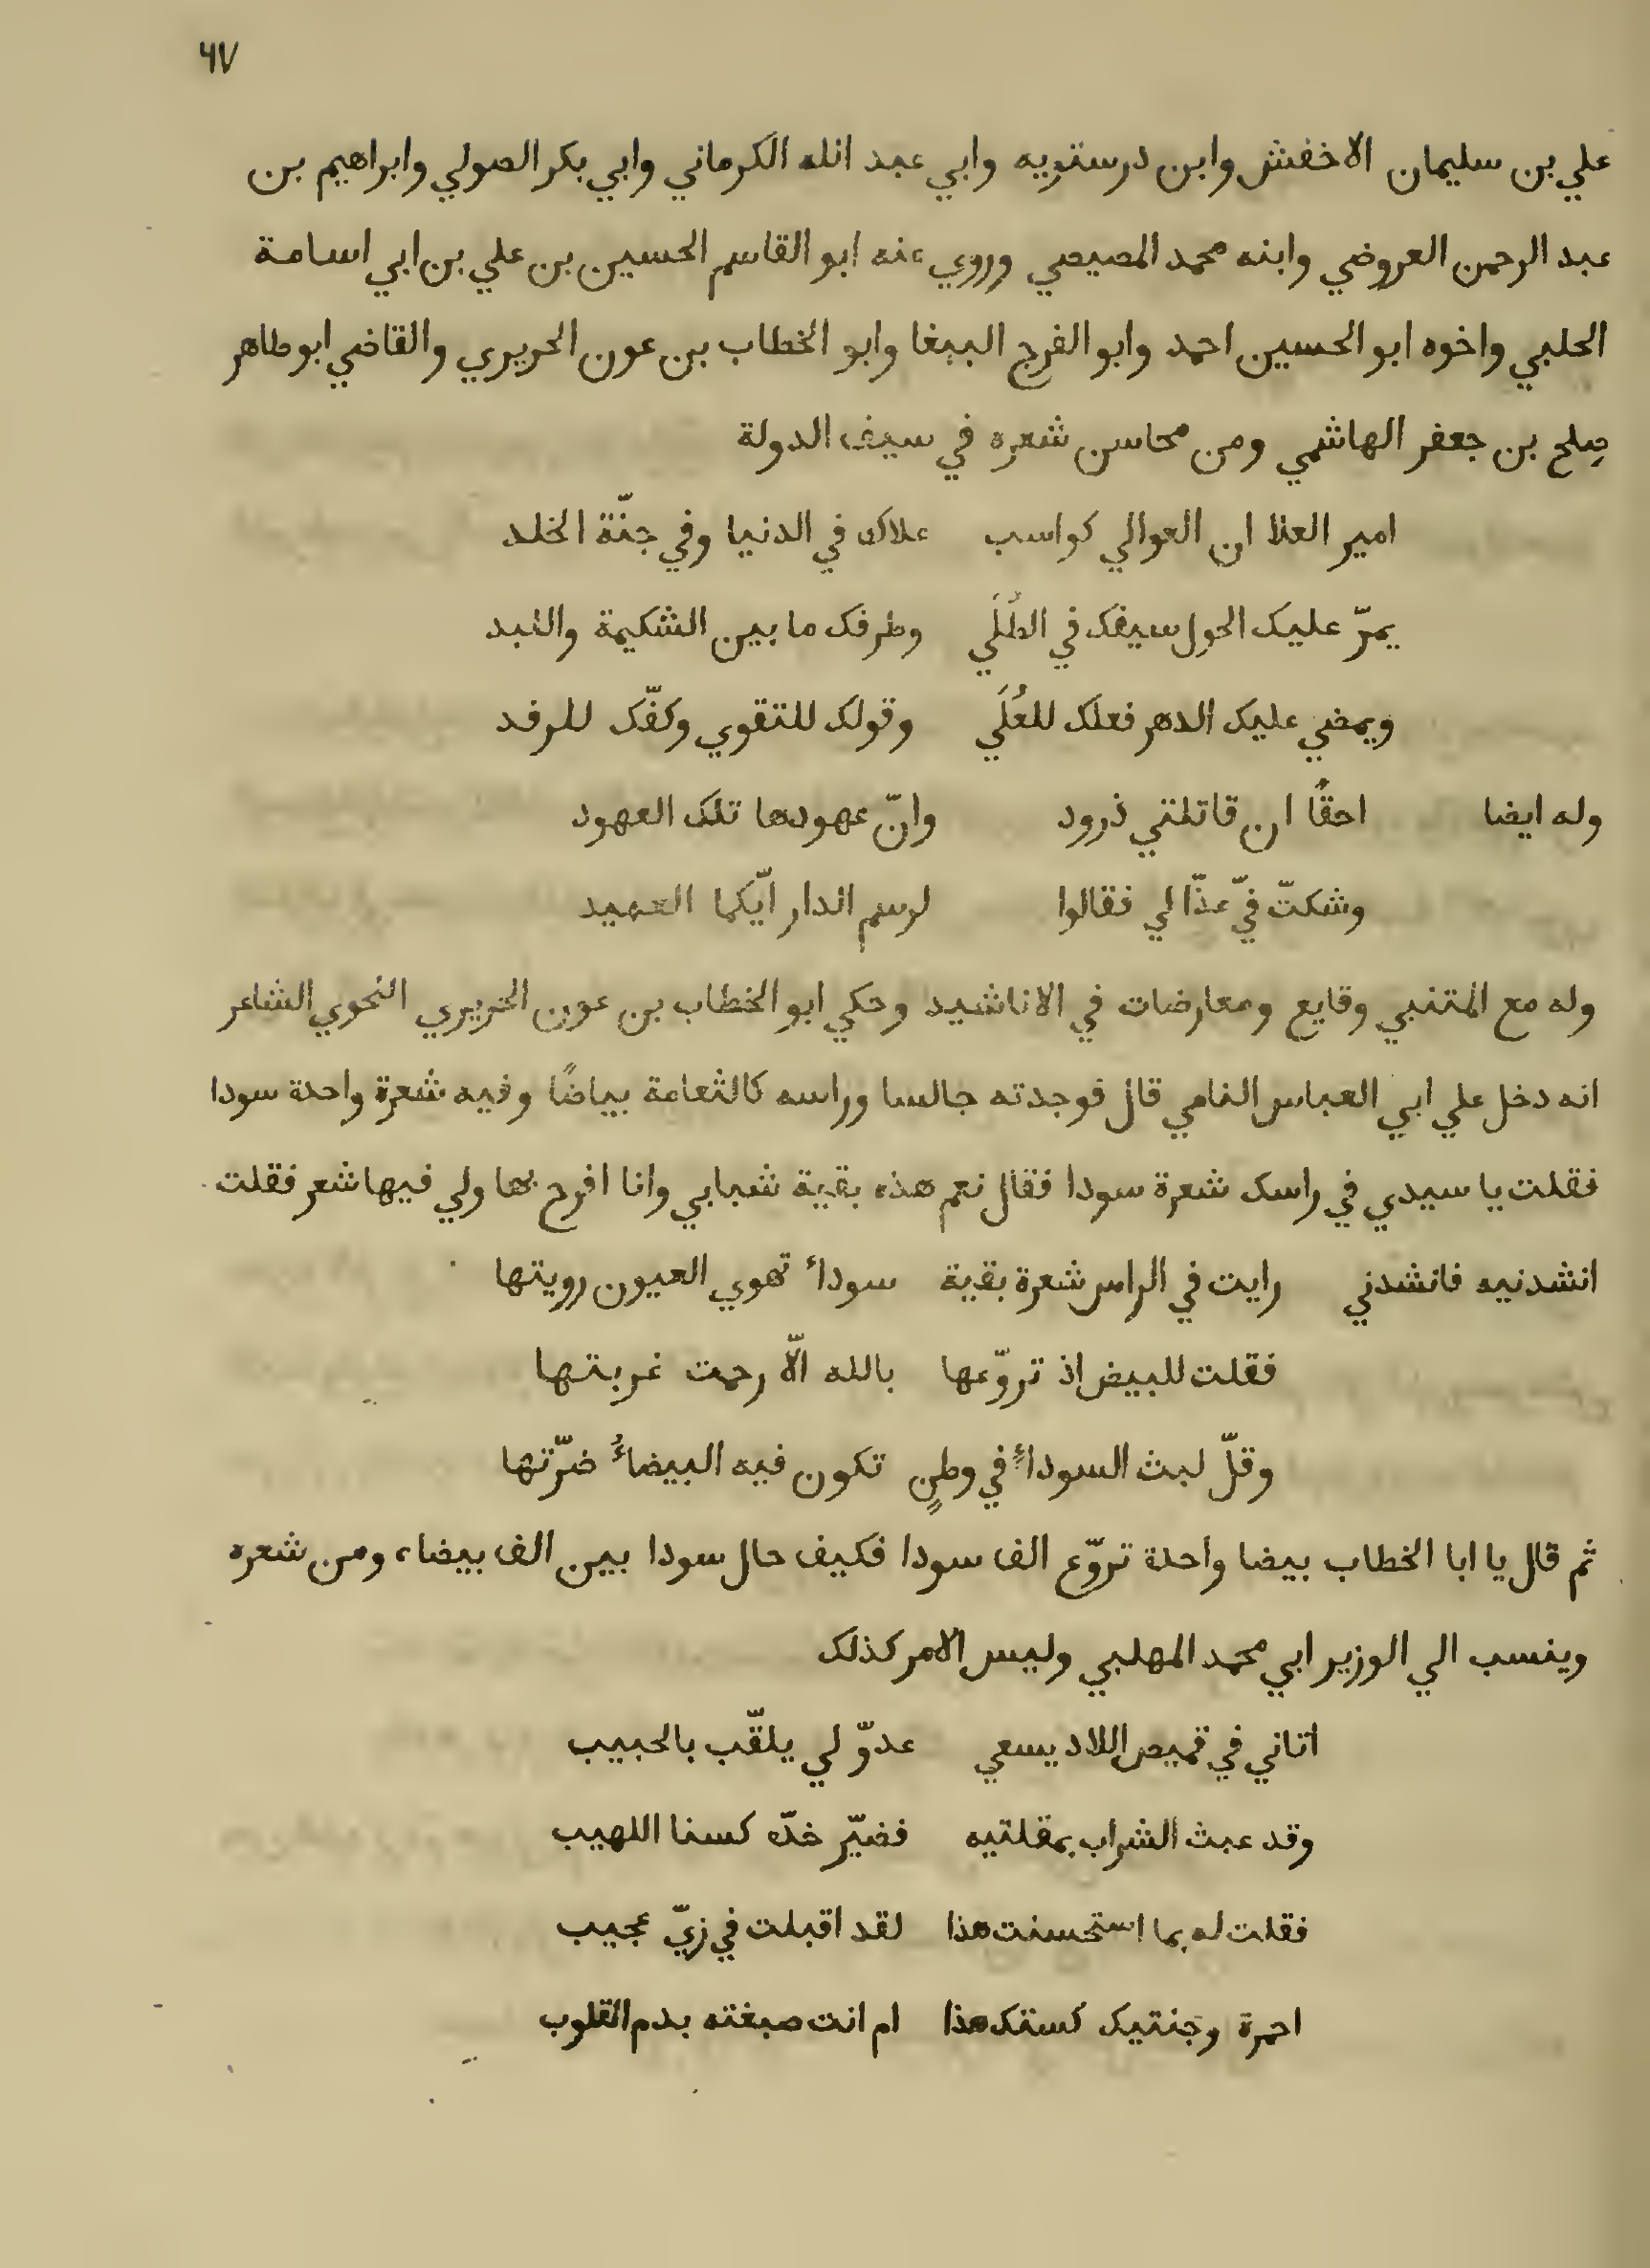 ٦٧
علي بن سليمان الاخفش وابن درستويه وابي عبد الله الكرماني وابي بكر الصولي وابراهيم بن
عبد الرحمن العروضي وابنه محمد المصيصي وروي عنه ابو القاسم الحسين بن علي بن ابي اسامة
الحلبي واخوه ابو الحسين احمد وابو الفرج الببغا وابو الخطاب بن عون الحريري والقاضي ابو طاهر
صلح بن جعفر الهاشمي ومن محاسن شعره في سيف الدولة
امير العلا ان العوالي كواسب علاك في الدنيا وفي جنّة الخلد
يمرّ عليك الحول سيفك في الطُلَي وطرفك ما بين الشكيمة واللبد
ويمضي عليك الدهر فعلك للعُلَي وقولك للتقوي وكفّك للرفد
وله ايضا احقًا ان قاتلتي ذرود وانّ عهودها تلك العهود
وشكتّ فيّ عذّالي فقالوا لرسم الدار ايّكما العميد
وله مع المتنبي وقايع ومعارضات في الاناشيد وحكي ابو الخطاب بن عون الحريري النحوي الشاعر
انه دخل علي ابي العباس النامي قال فوجدته جالسا وراسه كالثغامة بياضًا وفيه شعرة واحدة سودا
فقلت يا سيدي في راسك شعرة سودا فقال نعم هذه بقية شبابي وانا افرح بها ولي فيها شعر فقلت
انشدنيه فانشدني رايت في الراس شعرة بقية سوداء تهوي العيون رويتها
فقلت للبيض اذ تروّعها بالله الّا رحمت غربتها
وقلّ لبث السوداءِ في وطنٍ تكون فيه البيضاءُ ضرّتها
ثم قال يا ابا الخطاب بيضا واحدة تروّع الف سودا فكيف حال سودا بين الف بيضاء ومن شعره
وينسب الي الوزير ابي محمد المهلبي وليس الامر كذلك
اتاني في قميص اللاد يسعي عدوّ لي يلقّب بالحبيب
وقد عبث الشراب بمقلتيه فضيّر خدّه كسنا اللهيب
فقلت له بما استحسنت هذا لقد اقبلت في زيّ عجيب
احمرة وجنتيك كستك هذا ام انت صبغته بدم القلوب